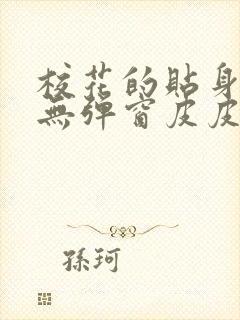 校花的貼身
無彈窗皮皮
孫珂